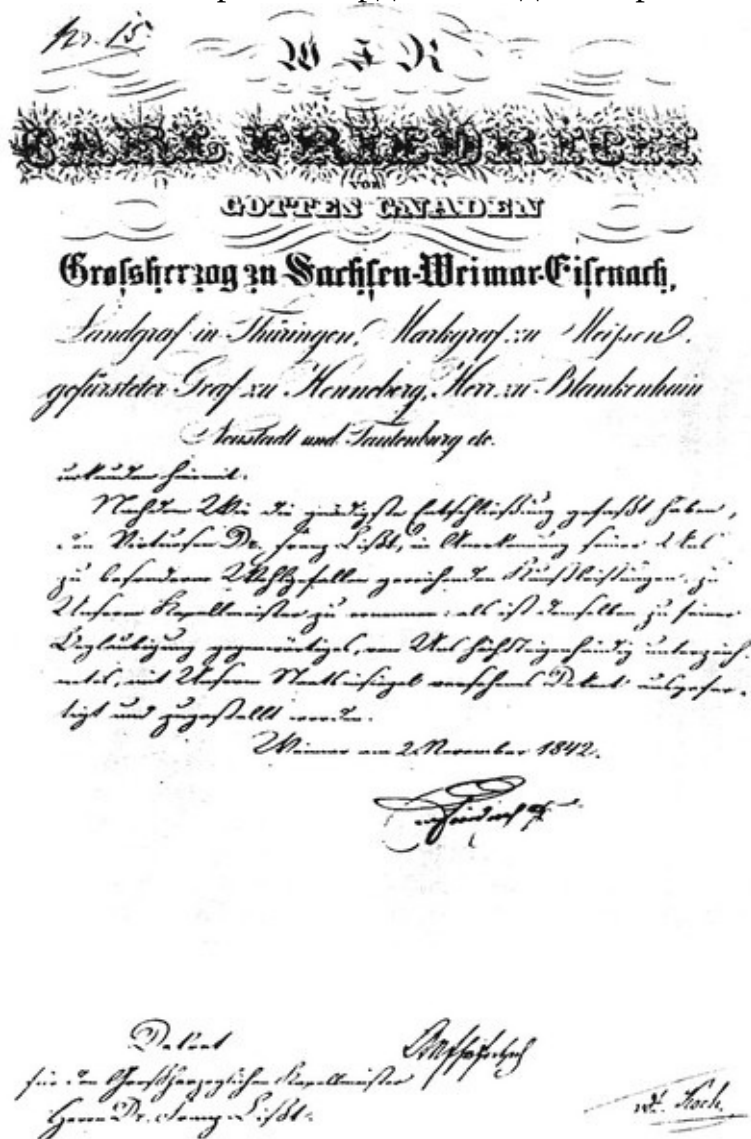 Nr. 15.
WIR
CARL FRIEDRICH
VON
GOTTES GNADEN
Grofsherzog zu Sachsen-Weimar-Eisenach,
Landgraf in Thüringen, Markgraf zu Meißen.
gefürsteter Graf zu Henneberg, Herr zu Blankenhain
Neustadt und Tautenburg etc.
urkunden hiermit.
Nachdem Wir die gnädigste Entschließung gefaßt haben,
den Virtuosen Dr. Franz Lißt, in Anerkennung seiner Uns
zu besonderem Wohlgefallen gereichenden Kunstleistungen, zu
Unserm Kapellmeister zu ernennen; als ist demselben zu seiner
Beglaubigung gegenwärtiges, von Uns höchsteigenhändig unterzeich-
netes, mit Unserm Staatsinsigel versehenes Dekret ausgefer-
tigt und zugestellt worden.
Weimar am 2 November 1842.
Dekret
für den Großherzoglichen Kapellmeister
Herrn Dr. Franz Lißt.